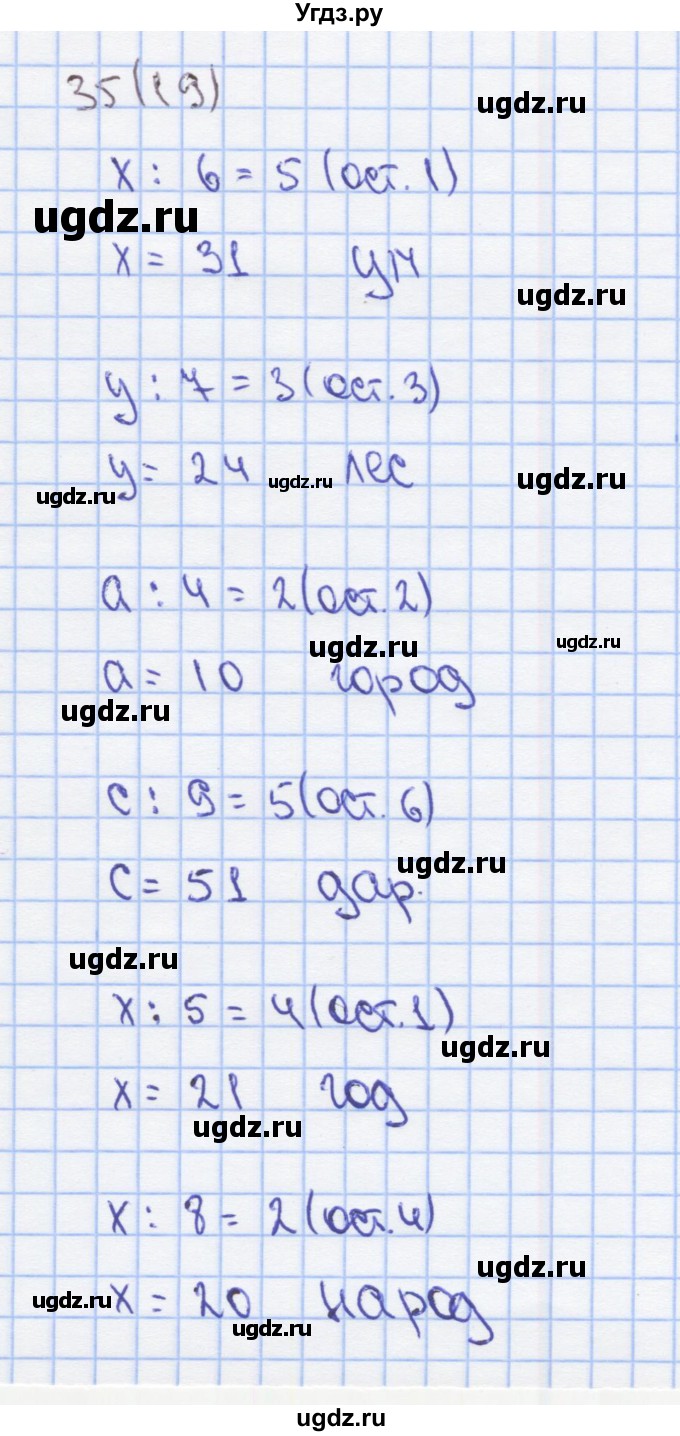 Угдз.ру
35(19)
ugdz.ru
x : 6 = 5 (ост. 1)
ugdz.ru
x = 31 ум
ugdz.ru
y : 7 = 3 (ост. 3)
y = 24 лес
ugdz.ru
ugdz.ru
ugdz.ru
a : 4 = 2 (ост. 2)
ugdz.ru
ugdz.ru
a = 10 город
ugdz.ru
c : 9 = 5 (ост. 6)
ugdz.ru
c = 51 дар.
ugdz.ru
x : 5 = 4 (ост. 1)
ugdz.ru
x = 21 год
ugdz.ru
x : 8 = 2 (ост. 4)
ugdz.ru
x = 20 народ
ugdz.ru
ugdz.ru
ugdz.ru